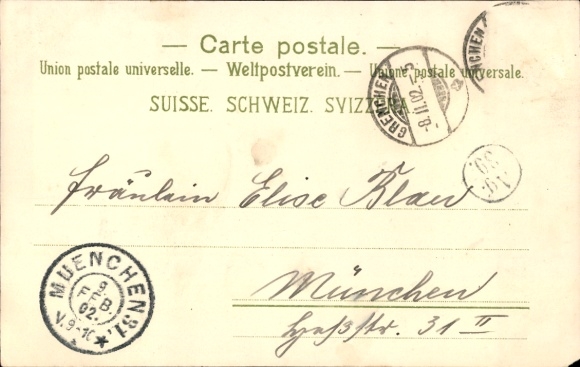 — Carte postale. —
Union postale universelle. — Weltpostverein. — Unione postale universale.
SUISSE. SCHWEIZ. SVIZZERA.
GRENCHEN
-8.II.02.-5
NCHEN
Fräulein Elise Blau
München
Heßstr. 31 II
MUENCHEN 31.
9
FEB
02.
V.9-10